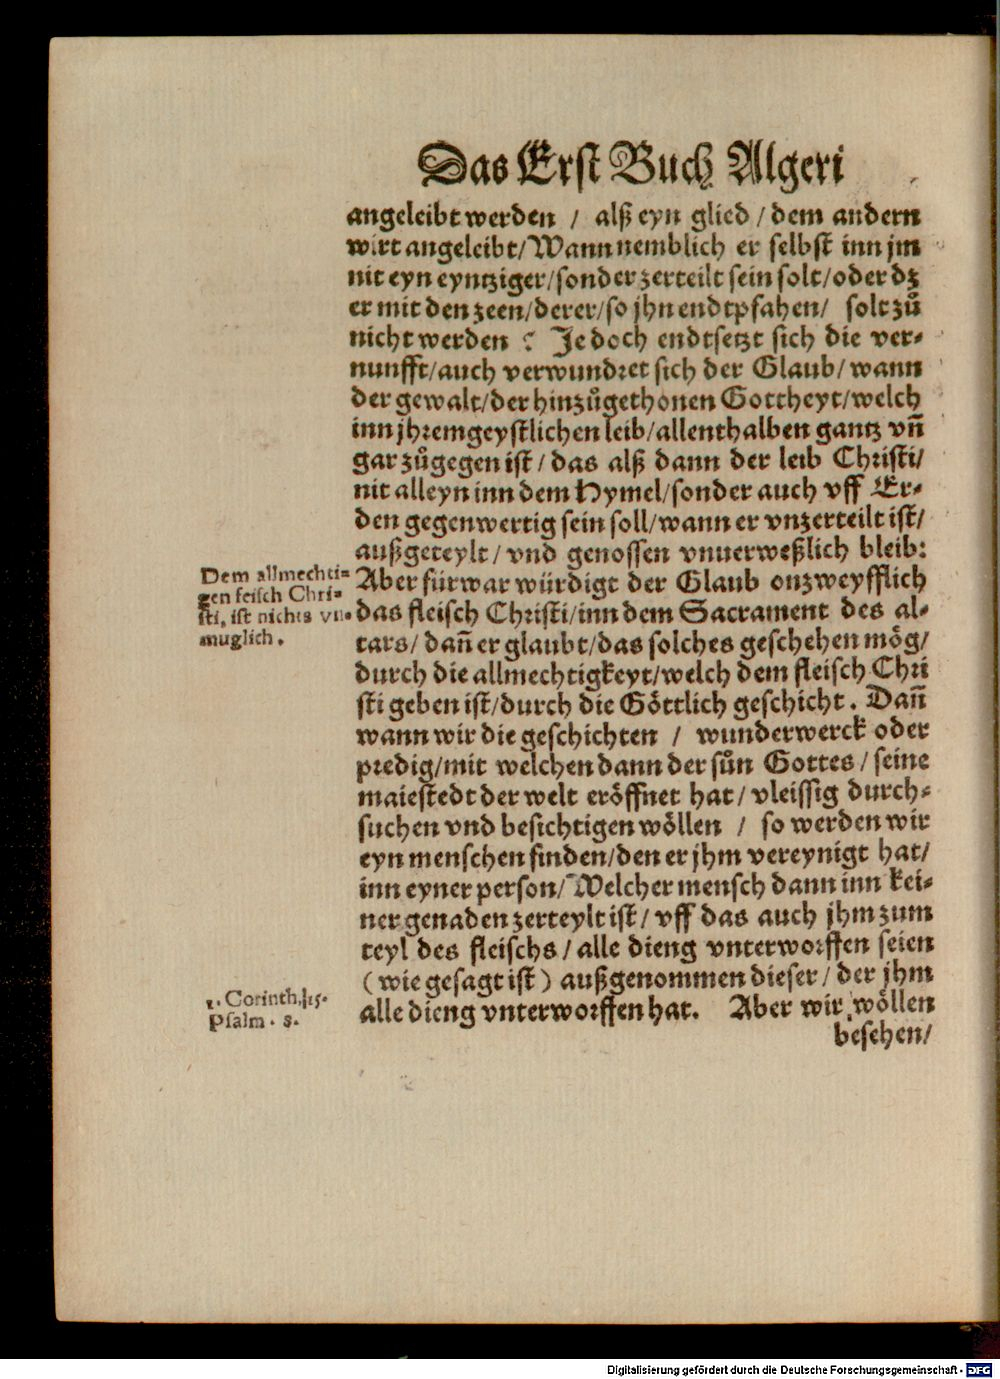 Das Erst Buch Algeri
angeleibt werden / alß eyn glied / dem andern
wirt angeleibt/Wann nemblich er selbst inn jm
nit eyn eyntziger/sonder zerteilt sein solt/oder dz
er mit den zeen/derer/so jhn endtpfahen/ solt zů
nicht werden ? Jedoch endtsetzt sich die ver-
nunfft/auch verwundret sich der Glaub/wann
der gewalt/der hinzůgethonen Gottheyt/welch
inn jhrem geystlichen leib/allenthalben gantz vñ
gar zůgegen ist/das alß dann der leib Christi/
nit alleyn inn dem Hymel/sonder auch vff Er-
den gegenwertig sein soll/wann er vnzerteilt ist/
außgeteylt/vnd genossen vnuerweßlich bleib:
Dem allmechti-
gen feisch Chri-
sti, ist nichts vn-
muglich.
Aber fürwar würdigt der Glaub onzweyfflich
das fleisch Christi/inn dem Sacrament des al-
tars/dañ er glaubt/das solches geschehen mög/
durch die allmechtigkeyt/welch dem fleisch Chri
sti geben ist/durch die Göttlich geschicht. Dañ
wann wir die geschichten / wunderwerck oder
predig/mit welchen dann der sůn Gottes/seine
maiestedt der welt eröffnet hat/vleissig durch-
suchen vnd besichtigen wöllen / so werden wir
eyn menschen finden/den er jhm vereynigt hat/
inn eyner person/Welcher mensch dann inn kei-
ner genaden zerteylt ist/vff das auch jhm zum
teyl des fleischs/alle dieng vnterworffen seien
(wie gesagt ist) außgenommen dieser/der jhm
1. Corinth. 15.
Psalm. 8.
alle dieng vnterworffen hat. Aber wir wöllen
besehen/
Digitalisierung gefördert durch die Deutsche Forschungsgemeinschaft - DFG